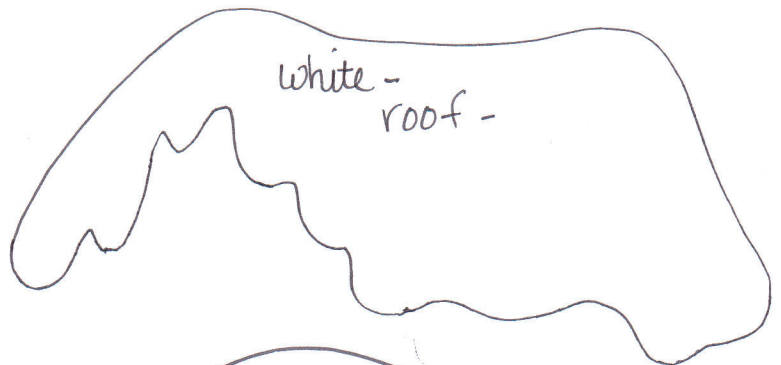 white -
roof -